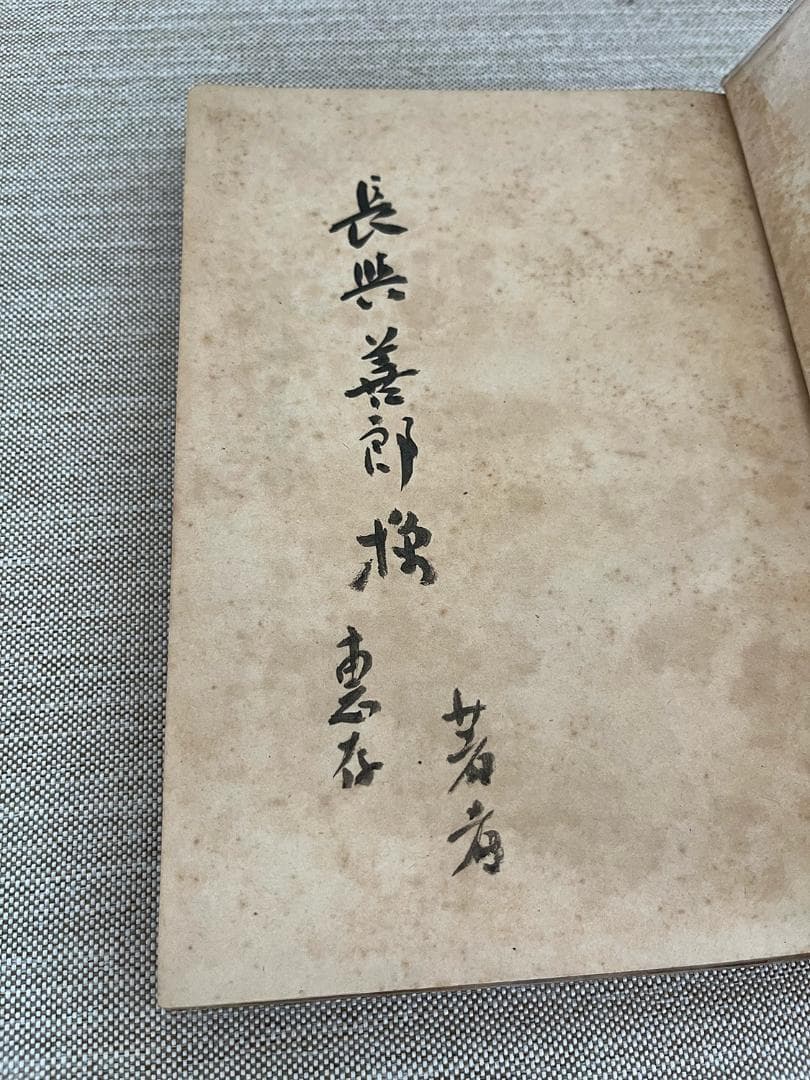 長與善郎様
惠存
著者